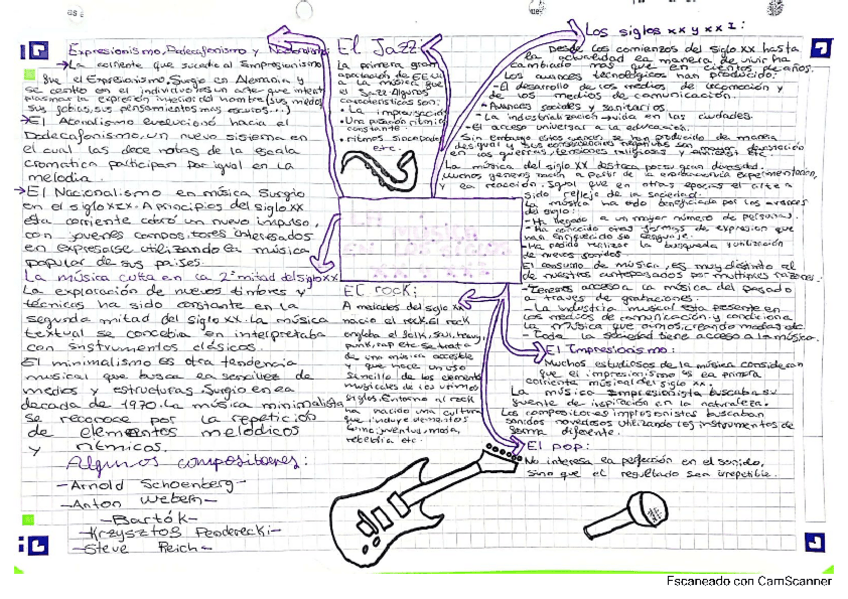 Expresionismo, Dodecafonismo y Nacionalismo
→La corriente que sucedió al Impresionismo
fue el Expresionismo. Surgio en Alemania y
se centró en el individuo
plasmar la expresión
sus fobias, sus pensamientos mas oscuros...)
→El Atonalismo evolucionó hacia el
Dodecafonismo, un nuevo sistema en
el cual las doce notas de la escala
cromatica participan por igual en la
melodia.
→El Nacionalismo en música Surgio
en el siglo XIX. A principios del siglo XX
esta corriente cobró un nuevo impulso,
con jovenes compositores interesados
en expresarse utilizando la música
popular de sus paises.
La música culta en la 2ª mitad del siglo XX
La exploración de nuevos timbres y
técnicas ha sido constante en la
segunda mitad del siglo XX. La música
textual se concebia en interpretaba
con instrumentos clásicos.
El minimalismo es otra tendencia
musical que busca la sencillez de
medios y estructuras. Surgio en la
decada de 1970. La música minimalista
se reconoce por la repetición
de elementos melódicos
y rítmicos.
Algunos compositores:
-Arnold Schoenberg-
-Anton Webern-
-Bartók-
-Krzysztof Penderecki-
-Steve Reich-
El Jazz:
La primera gran
aportación de EEUU
a música que
el Jazz. Algunas
características son:
• La improvisación
• Una pulsación rítmica
constante.
• ritmos sincopados
etc.
La
música
XX
EL rock:
A mediados del siglo XX
nacio el rock. El rock
engloba el folk, soul, heavy,
punk, rap etc. Se trata
de una música accesible
y que hace un uso
sencillo de los elementos
musicales de los ultimos
siglos. Entorno al rock
ha nacido una cultura
que incluye elementos
como: juventud, moda,
rebeldia etc.
Los siglos XX y XXI:
Desde los comienzos del siglo XX hasta
la actualidad la manera de vivir ha
cambiado mas que en cientos de años.
Los avances tecnologicos han producido:
-El desarrollo de los medios de locomoción y
de los medios de comunicación.
-Avances sociales y sanitarios.
-La industrialización→vida en las ciudades.
-El acceso universal a la educación.
Sin embargo estos avances se han producido de manera
desigual y sus consecuencias negativas
en las guerras, tensiones religiosas y
La música del siglo XX destaca por su gran diversidad.
Muchos generos nacen a partir de la experimentación,
y la reacción. Igual que en otras epocas el arte a
sido reflejo de la sociedad.
La música ha sido beneficiada por los avances
del siglo:
-Ha llegado a un mayor número de personas.
-Ha conocido otras formas de expresion que
han enriquecido su lenguaje.
-Ha podido realizar la busqueda y utilización
de nuevos sonidos
El consumo de música, es muy distinto al
de nuestros antepasados por multiples razones:
-Tenemos acceso a la música del pasado
a traves de grabaciones.
-La industria musical esta presente en
los medios de comunicación, y condiciona
la música que oimos, creando modas etc.
-Toda la sociedad tiene acceso a la música.
El Impresionismo:
Muchos estudiosos de la música consideran
que el impresionismo es la primera
corriente músical del siglo XX.
La músico Impresionista buscaba su
fuente de inspiración en la naturaleza.
Los compositores impresionistas buscaban
sonidos novedosos utilizando los instrumentos de
forma diferente.
El pop:
No interesa la perfección en el sonido,
sino que el resultado sea irrepetible.
Escaneado con CamScanner